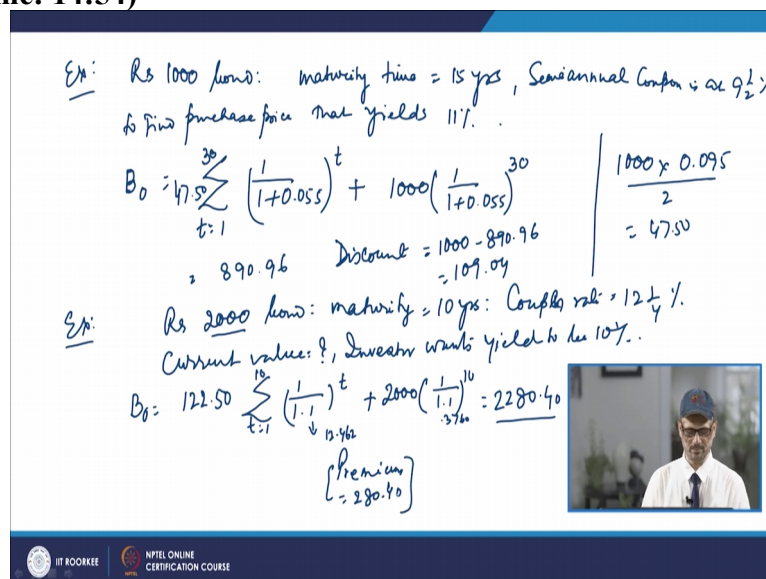 Ex: Rs 1000 bond: maturity time = 15 yrs, Semiannual Coupon is at 9 1/2 %
to find purchase price that yields 11%.
B₀ = 47.50 ∑_{t=1}^{30} (1/(1+0.055))^t + 1000 (1/(1+0.055))^30
1000 × 0.095 / 2
= 47.50
= 890.96 Discount = 1000 - 890.96
= 109.04
Ex: Rs 2000 bond: maturity = 10 yrs: Coupon rate = 12 1/4 %.
Current value: ?, Investor wants yield to be 10%.
B₀ = 122.50 ∑_{t=1}^{10} (1/1.1)^t + 2000 (1/1.1)^10 = 2280.40
↓ 12.462 .3760
[Premium
= 280.40]
IIT ROORKEE
NPTEL ONLINE
CERTIFICATION COURSE